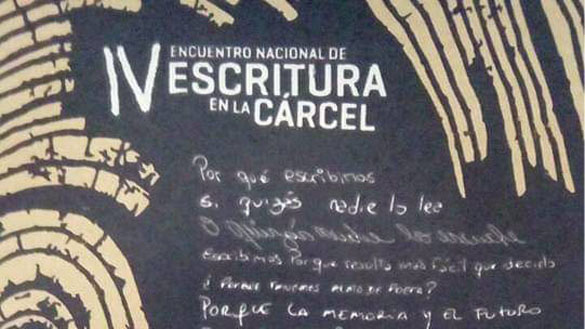 ENCUENTRO NACIONAL DE
IV ESCRITURA
EN LA CÁRCEL
Por qué escribimos
Si quizás nadie lo lee
O quizás nadie lo escuche
Escribimos Porque resulta más fácil que decirlo
¿ Porque tenemos alma de Poeta?
PORQUE LA MEMORIA Y EL FUTURO